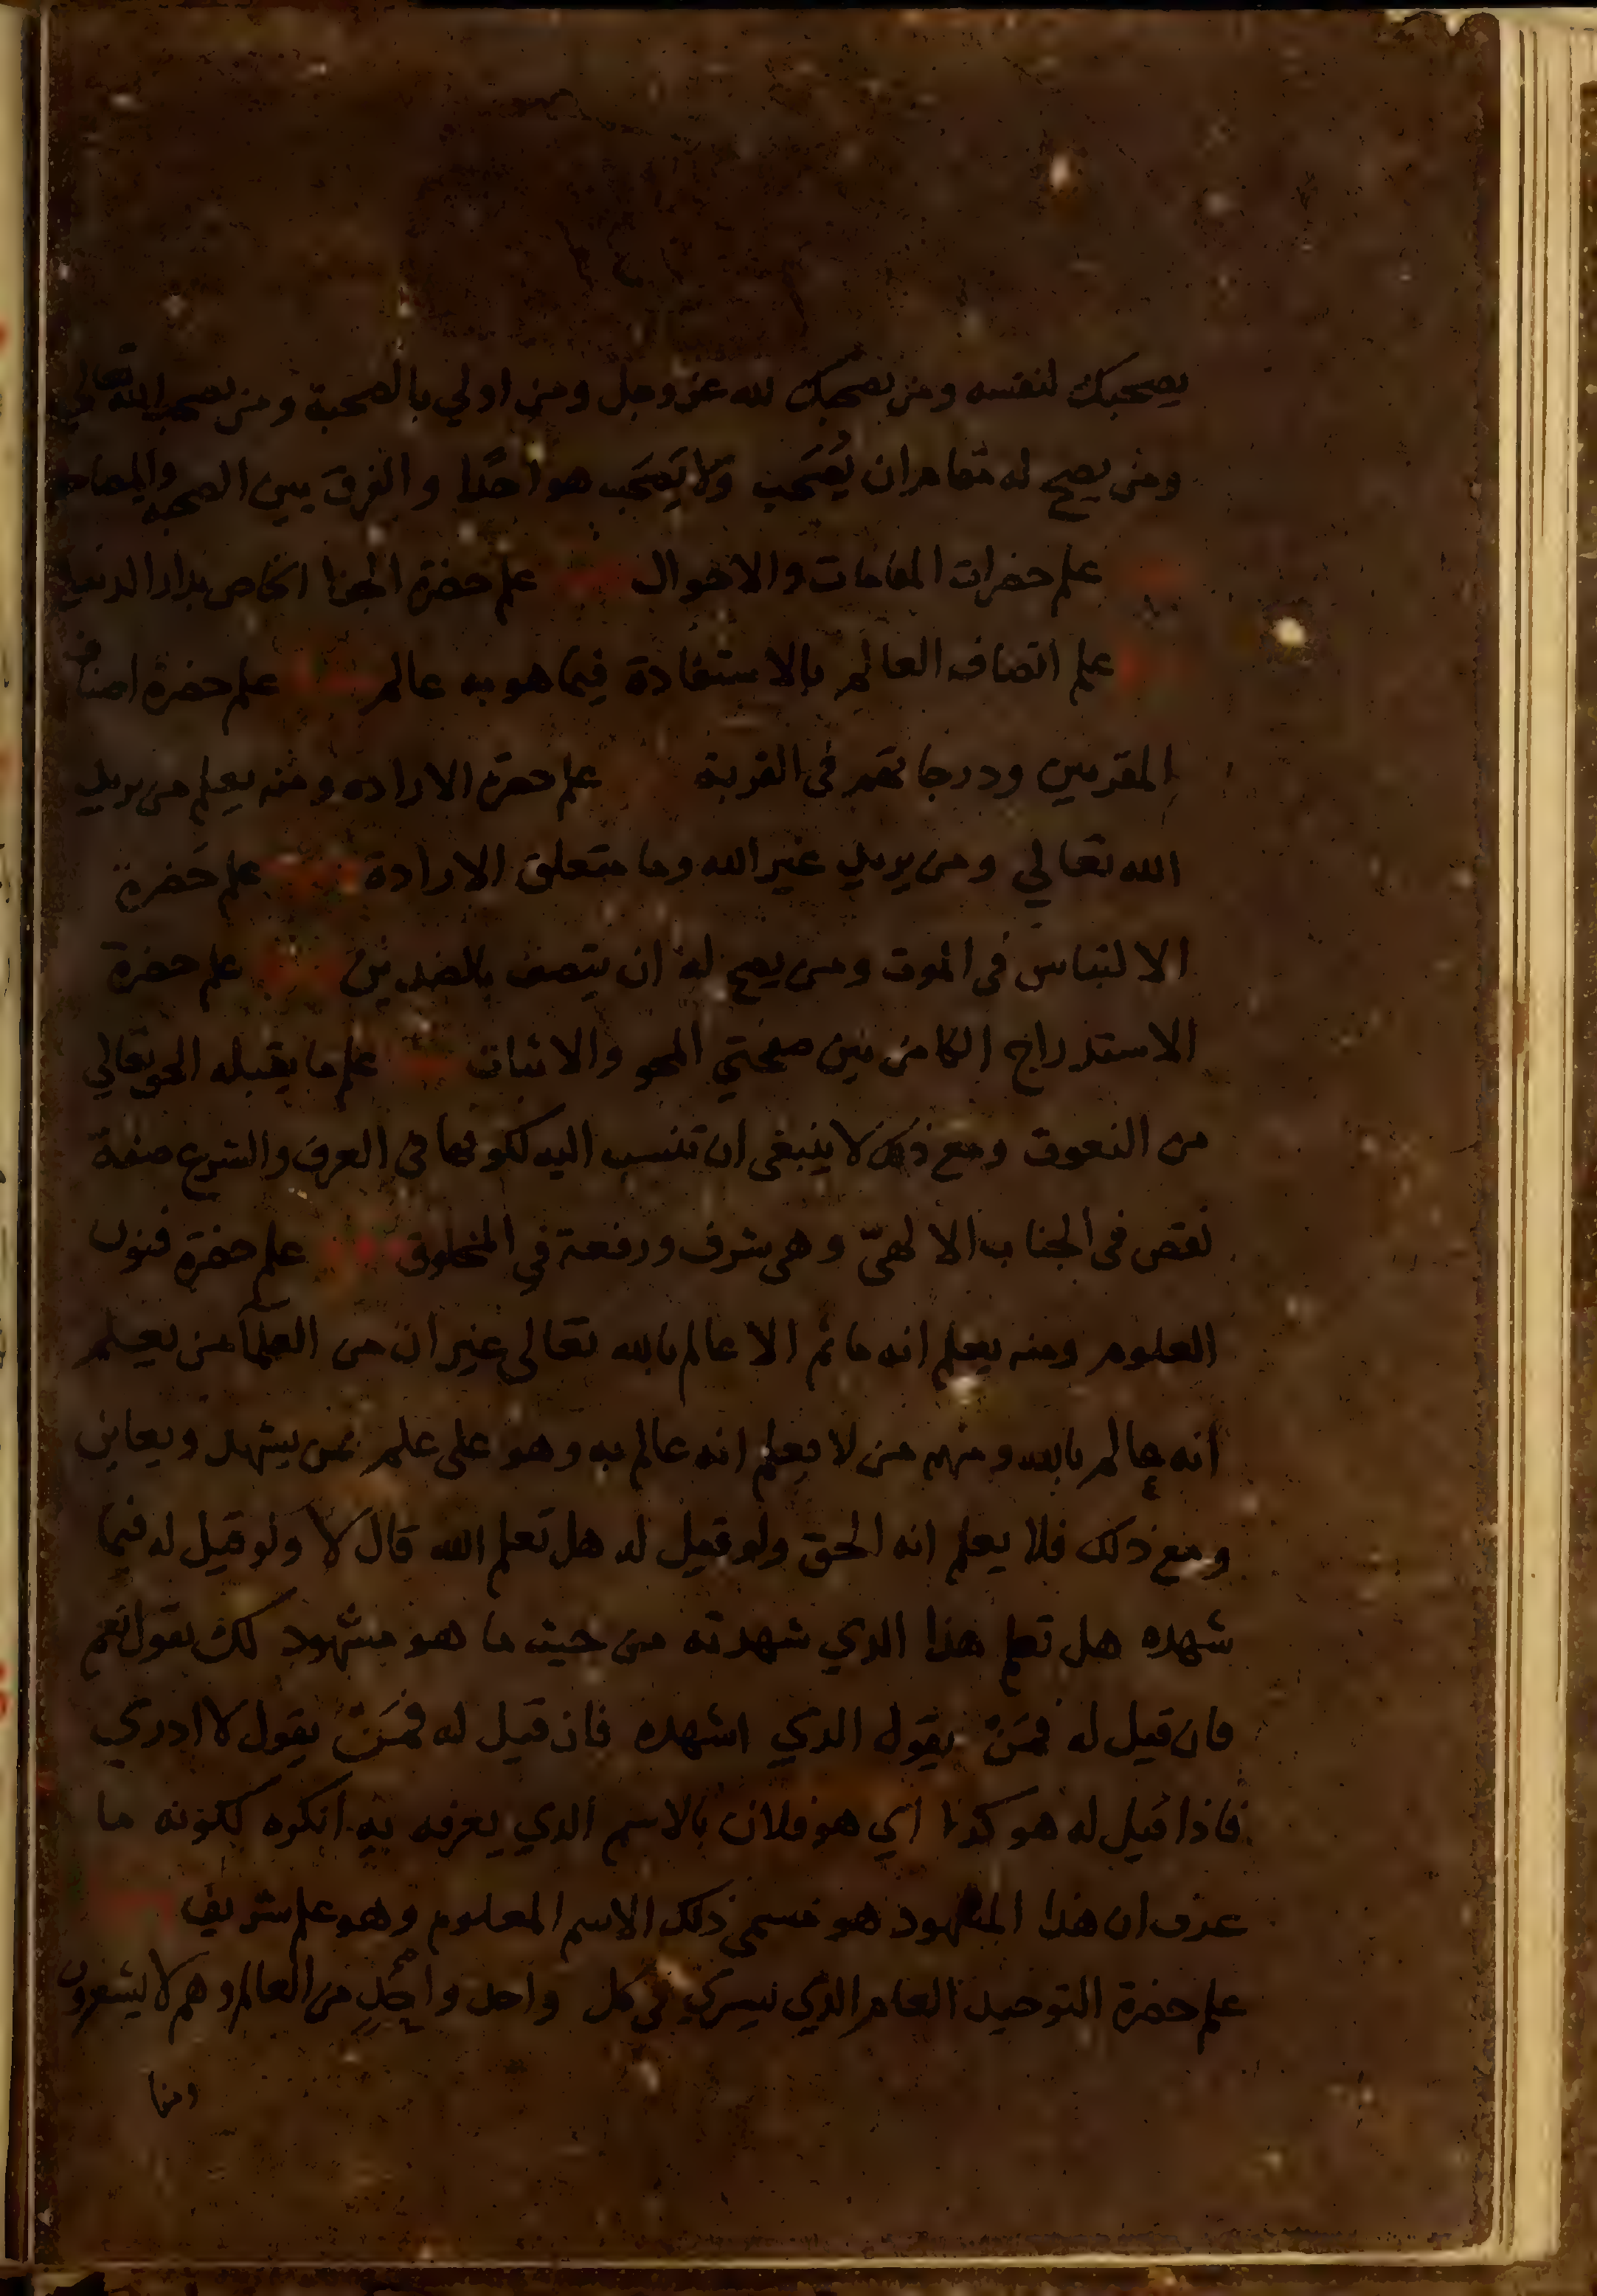 يصحبك لنفسه ومن يصحبك لله عز وجل ومن اولي بالصحبة ومن يصحب الله تعالي
ومن يصح له مقام ان يُصحَب ولا يَصحَب هو احدًا والفرق بين الصحبة والمصاحبة
علم حضرات المقامات والاحوال علم حضرة الجزا الخاص بدار الدنيا
علم اتصاف العالم بالاستفادة فيما هو به عالم علم حضرة اصناف
المقربين ودرجاتهم في القربة علم حضرة الاراده ومنه يعلم من يريد
الله تعالي ومن يريد غير الله وما متعلق الارادة علم حضرة
الالتباس في الموت ومن يصح له ان يتصف بالضدين علم حضرة
الاستدراج الكامن بين صفحتي المحو والاثبات علم ما يقبله الحق تعالي
من النعوت ومع ذلك لا ينبغي ان تنسب اليه لكونها في العرف والشرع صفة
نقص في الجناب الالهيّ وهي شرف ورفعة في المخلوق علم حضرة فنون
العلوم ومنه يعلم انه ما ثم الا عالم بالله تعالي غير ان من العلمآ من يعلم
انه عالم بالله ومنهم من لا يعلم انه عالم به وهو على علم بمن يشهد ويعاين
ومع ذلك فلا يعلم انه الحق ولو قيل له هل تعلم الله قال لا ولو قيل له فيما
شهده هل تعلم هذا الذي شهدته من حيث ما هو مشهود لك يقول نعم
فان قيل له فمَنْ يقول الذي اشهده فان قيل له فمَنْ يقول لا ادري
فاذا قيل له هو كذا اي هو فلان بالاسم الذي يعرفه به انكره لكونه ما
عرف ان هذا المشهود هو مسمي ذلك الاسم المعلوم وهو علم شريف
علم حضرة التوحيد العام الذي يسري في كل واحد واحدٍ من العالم وهم لا يشعرون
ومنها